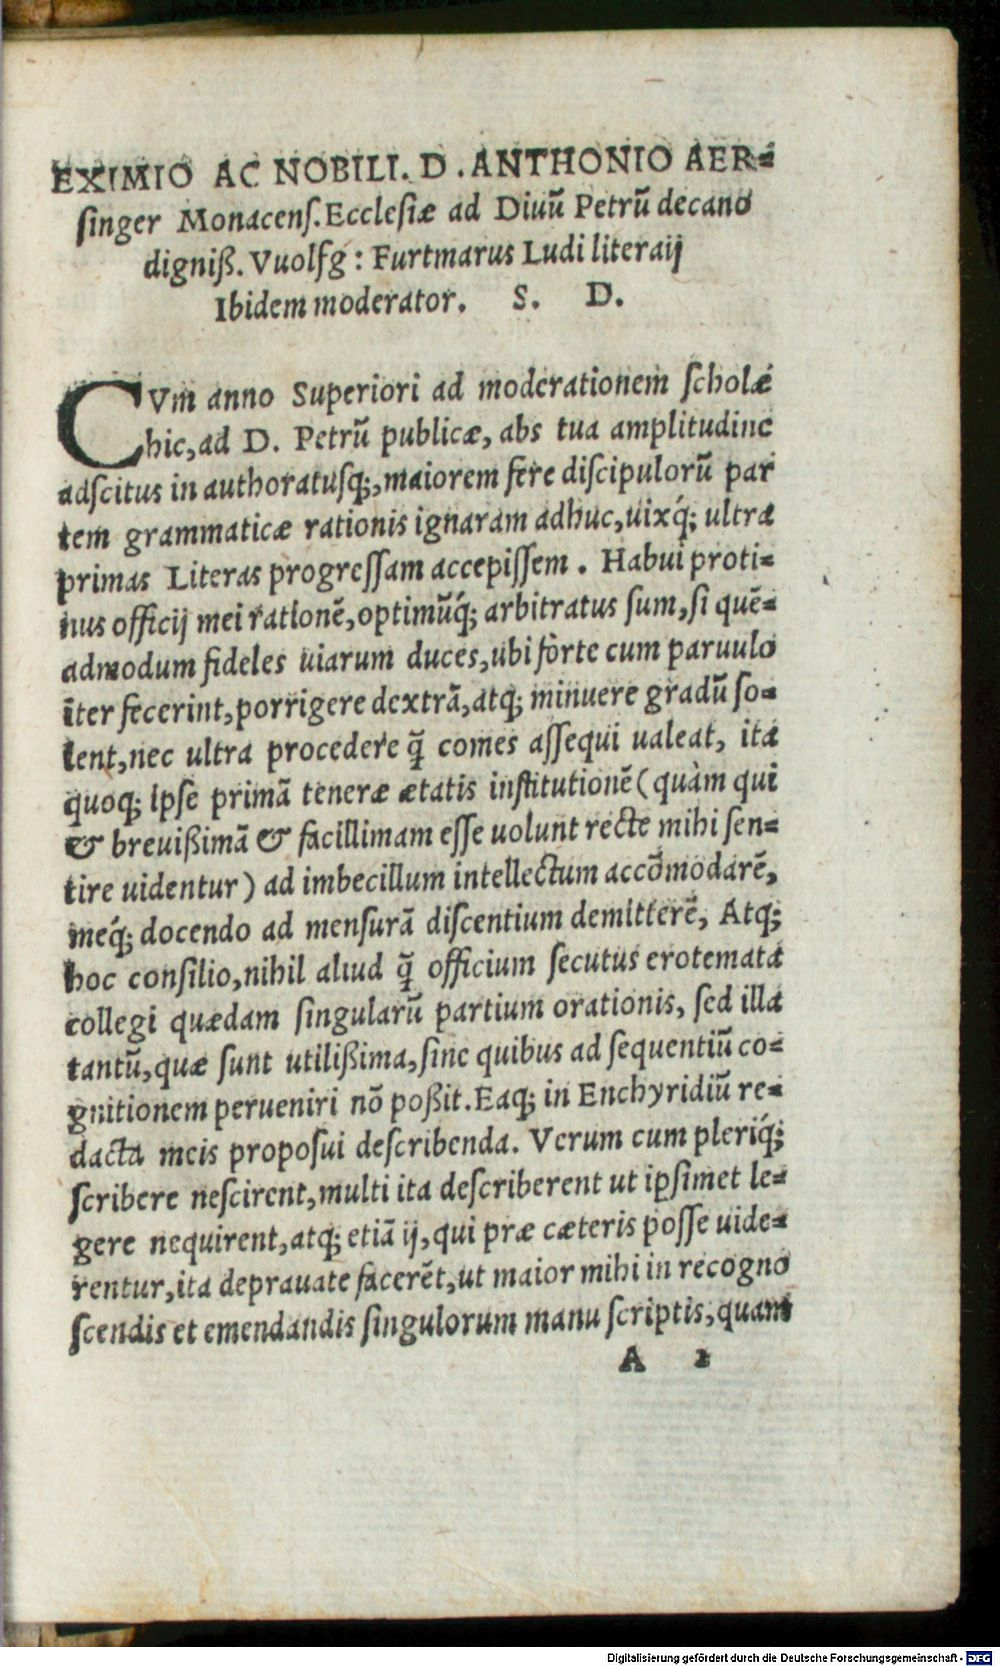 EXIMIO AC NOBILI. D. ANTHONIO AER⸗
singer Monacens. Ecclesiæ ad Diuũ Petrũ decano
digniß. Vuolfg: Furtmarus Ludi literaij
Ibidem moderator. S. D.
CVm anno Superiori ad moderationem scholæ
hic, ad D. Petrũ publicæ, abs tua amplitudine
adscitus in authoratusq́;, maiorem fere discipulorũ par
tem grammaticæ rationis ignaram adhuc, uixq́; ultra
primas Literas progressam accepissem. Habui proti⸗
nus officij mei rationẽ, optimũq́; arbitratus sum, si quẽ⸗
admodum fideles uiarum duces, ubi forte cum paruulo
ĩter fecerint, porrigere dextrã, atq; minuere gradũ so⸗
lent, nec ultra procedere q̃ comes assequi ualeat, ita
quoq; Ipse primã teneræ ætatis institutionẽ (quàm qui
& breuißimã & facillimam esse uolunt recte mihi sen⸗
tire uidentur) ad imbecillum intellectum accõmodarẽ,
meq́; docendo ad mensurã discentium demitterẽ, Atq;
hoc consilio, nihil aliud q̃ officium secutus erotemata
collegi quædam singularũ partium orationis, sed illa
tantũ, quæ sunt utilißima, sine quibus ad sequentiũ co⸗
gnitionem perueniri nõ poßit. Eaq; in Enchyridiũ re⸗
dacta meis proposui describenda. Verum cum pleriq́;
scribere nescirent, multi ita describerent ut ipsimet le⸗
gere nequirent, atq; etiã ij, qui præ cæteris posse uide⸗
rentur, ita deprauate facerẽt, ut maior mihi in recogno
scendis et emendandis singulorum manu scriptis, quam
A 2
Digitalisierung gefördert durch die Deutsche Forschungsgemeinschaft - DFG